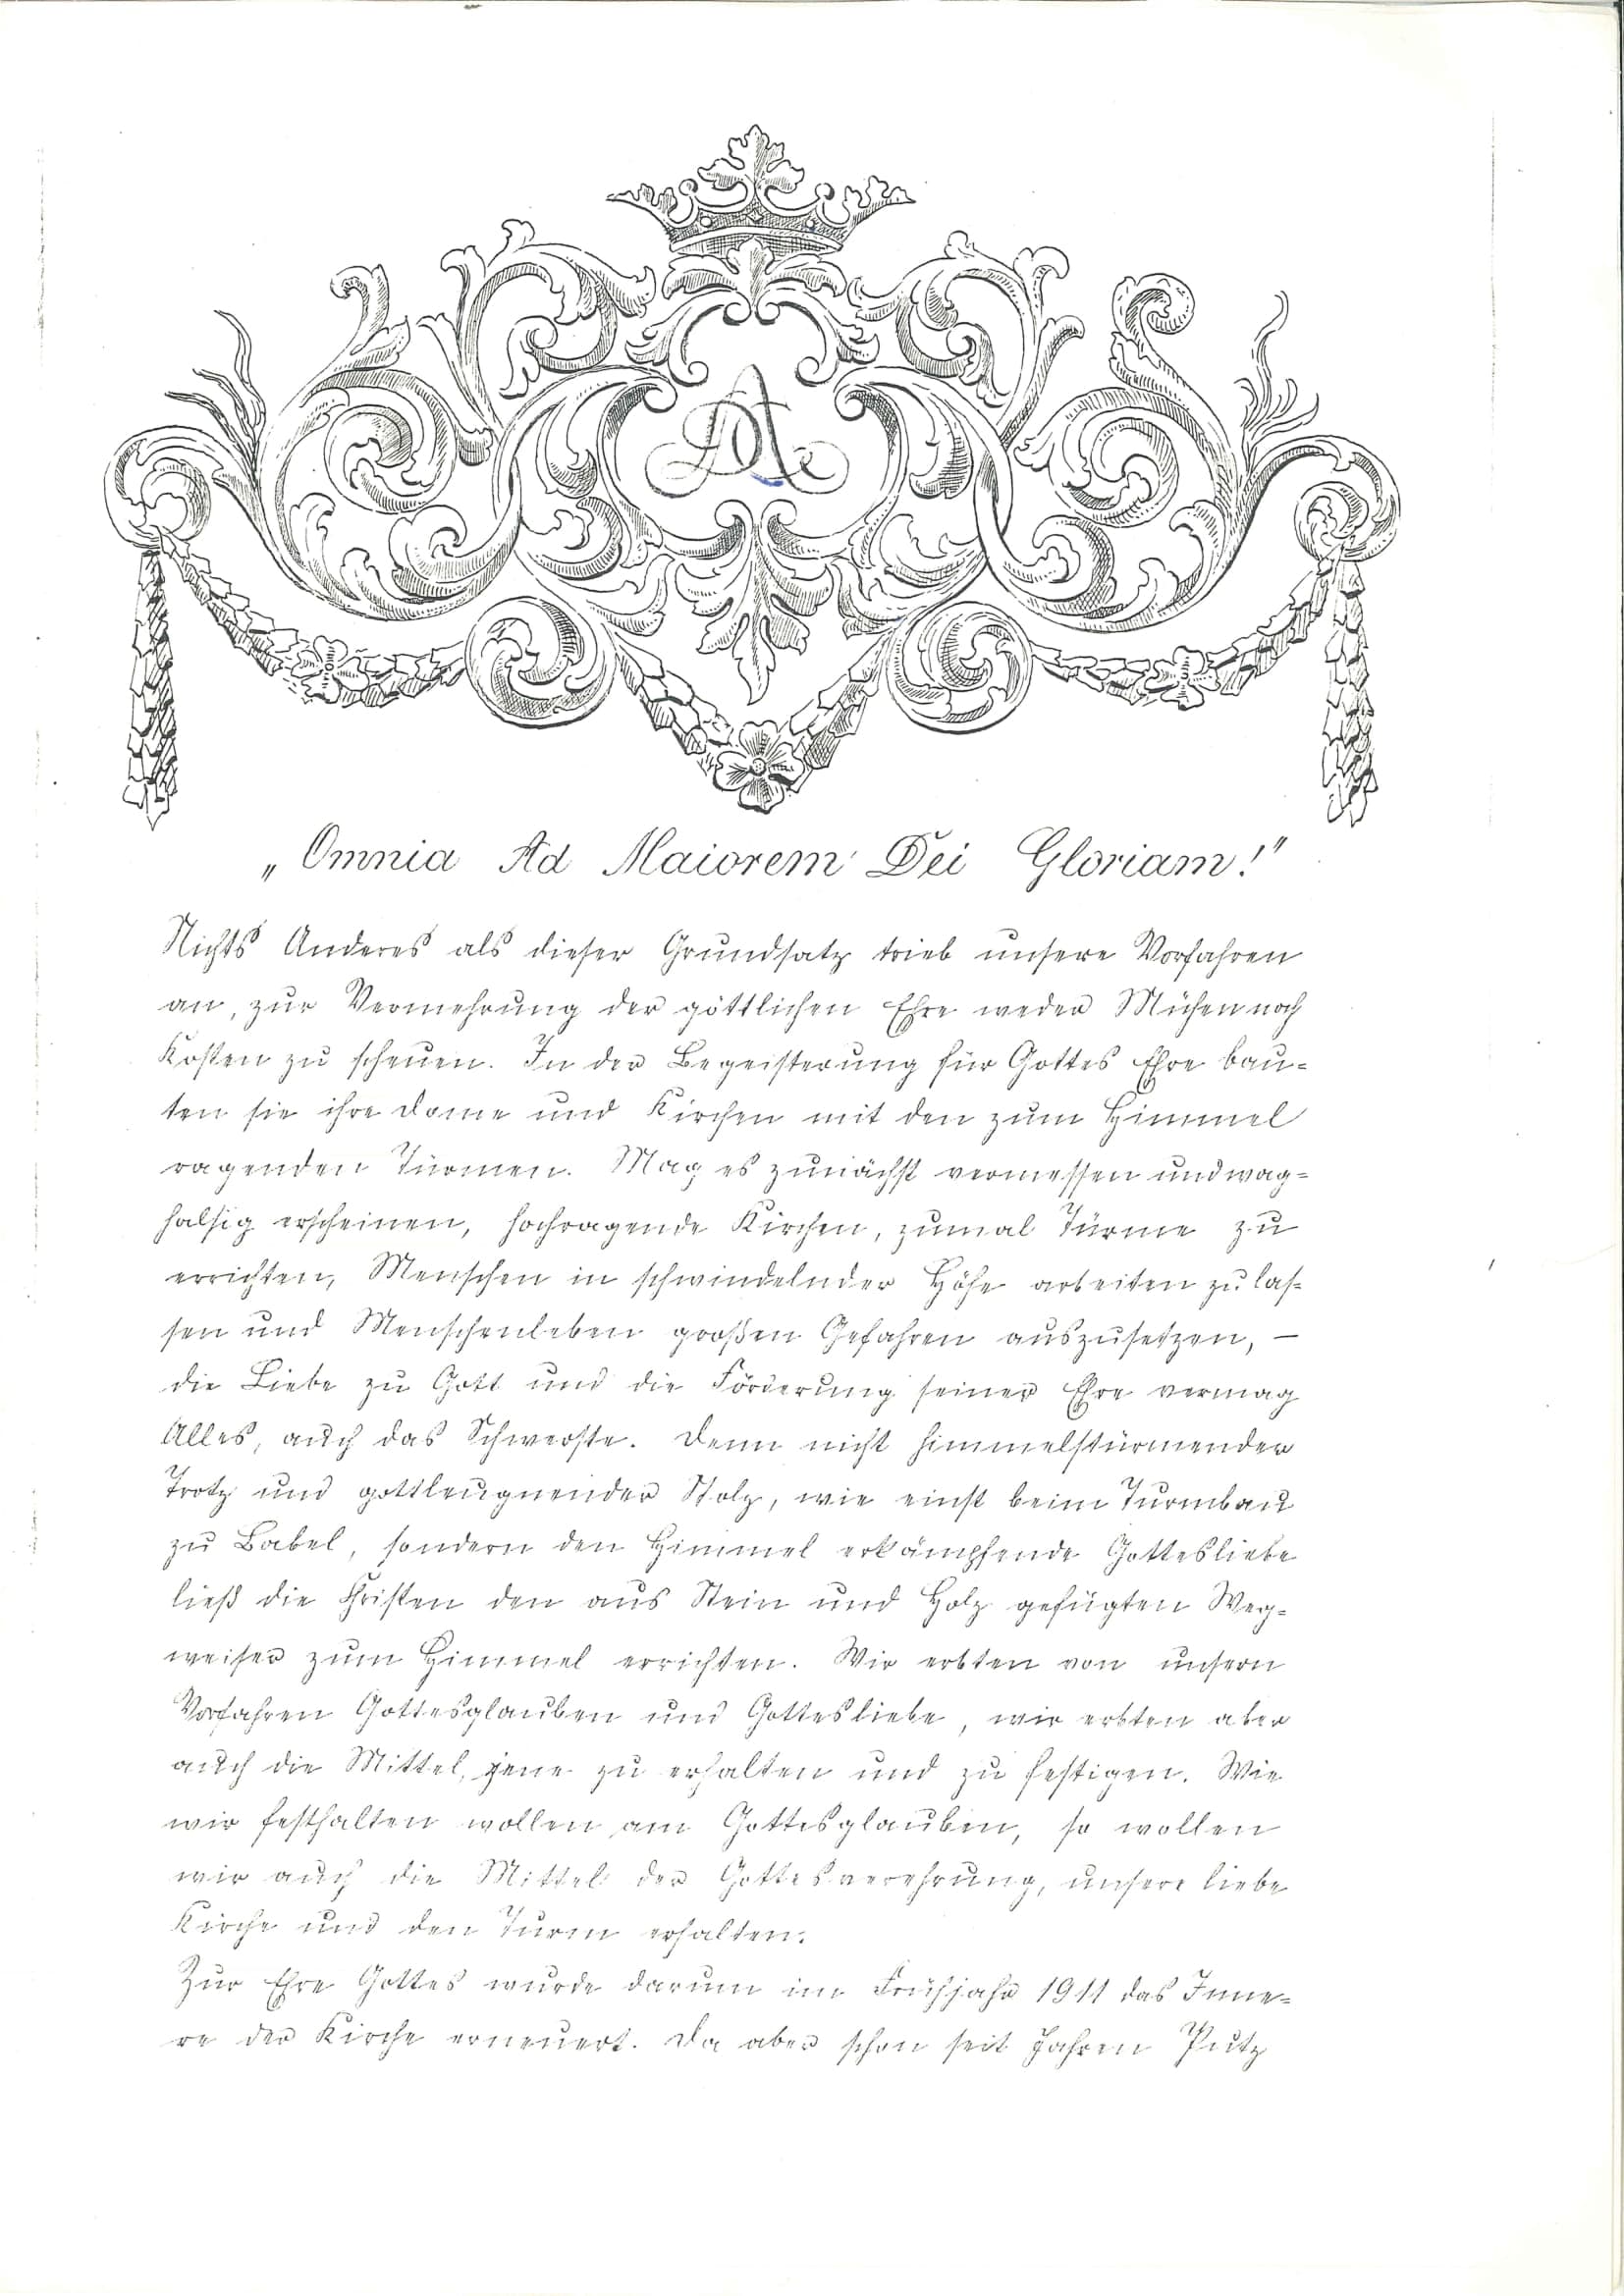 „Omnia Ad Maiorem Dei Gloriam!"
Nichts Anderes als dieser Grundsatz trieb unsere Vorfahren
an, zur Vermehrung der göttlichen Ehre weder Mühen noch
Kosten zu scheuen. In der Begeisterung für Gottes Ehre bau-
ten sie ihre Dome und Kirchen mit den zum Himmel
ragenden Türmen. Mag es zunächst vermessen und wag-
halsig erscheinen, hochragende Kirchen, zumal Türme zu
errichten, Menschen in schwindelnder Höhe arbeiten zu las-
sen und Menschenleben großen Gefahren auszusetzen, –
die Liebe zu Gott und die Förderung seiner Ehre vermag
Alles, auch das Schwerste. Denn nicht himmelstürmender
Trotz und gottleugnender Stolz, wie einst beim Turmbau
zu Babel, sondern den Himmel erkämpfende Gottesliebe
ließ die Christen den aus Stein und Holz gefügten Weg-
weiser zum Himmel errichten. Wir erbten von unsern
Vorfahren Gottesglauben und Gottesliebe, wir erbten aber
auch die Mittel, jene zu erhalten und zu festigen. Wie
wir festhalten wollen am Gottesglauben, so wollen
wir auch die Mittel der Gottesverehrung, unsere liebe
Kirche und den Turm erhalten.
Zur Ehre Gottes wurde darum im Frühjahr 1911 das Inne-
re der Kirche erneuert. Da aber schon seit Jahren Putz